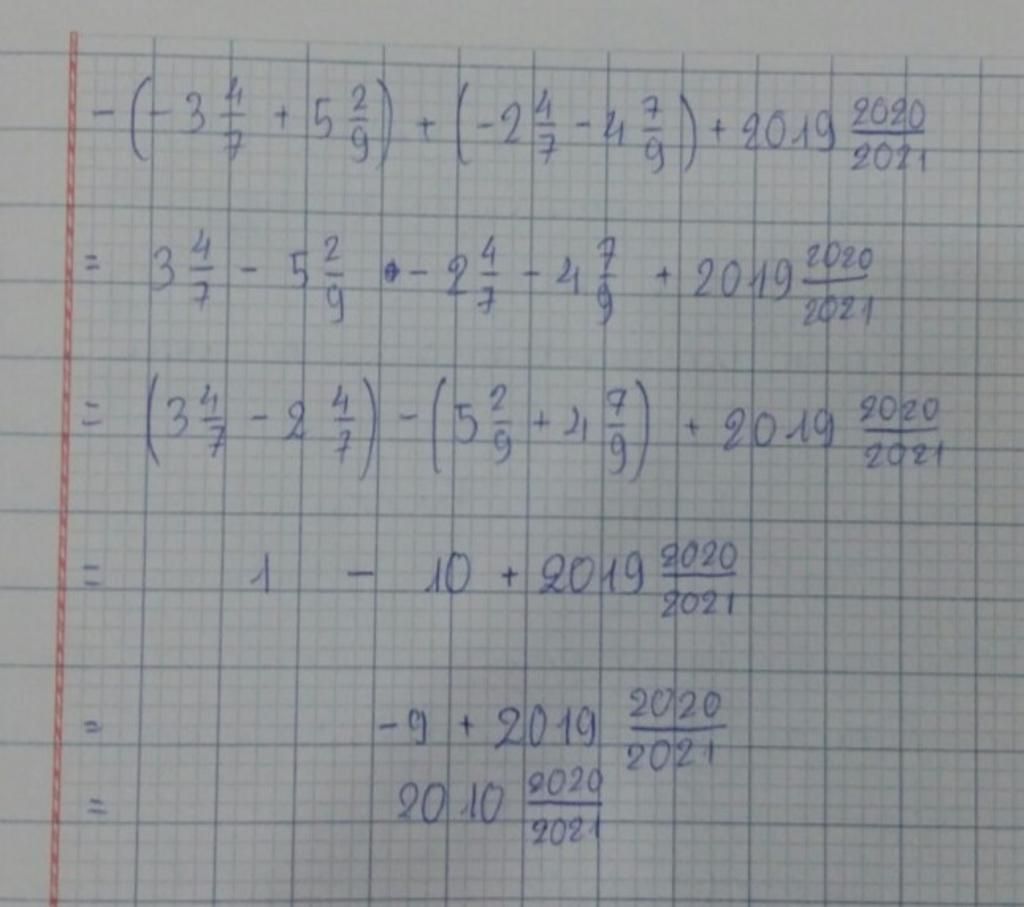 -(-3 4/7 + 5 2/9) + (-2 4/7 - 4 7/9) + 2019 2020/2021
= 3 4/7 - 5 2/9 - 2 4/7 - 4 7/9 + 2019 2020/2021
= (3 4/7 - 2 4/7) - (5 2/9 + 4 7/9) + 2019 2020/2021
= 1 - 10 + 2019 2020/2021
= -9 + 2019 2020/2021
= 2010 2020/2021